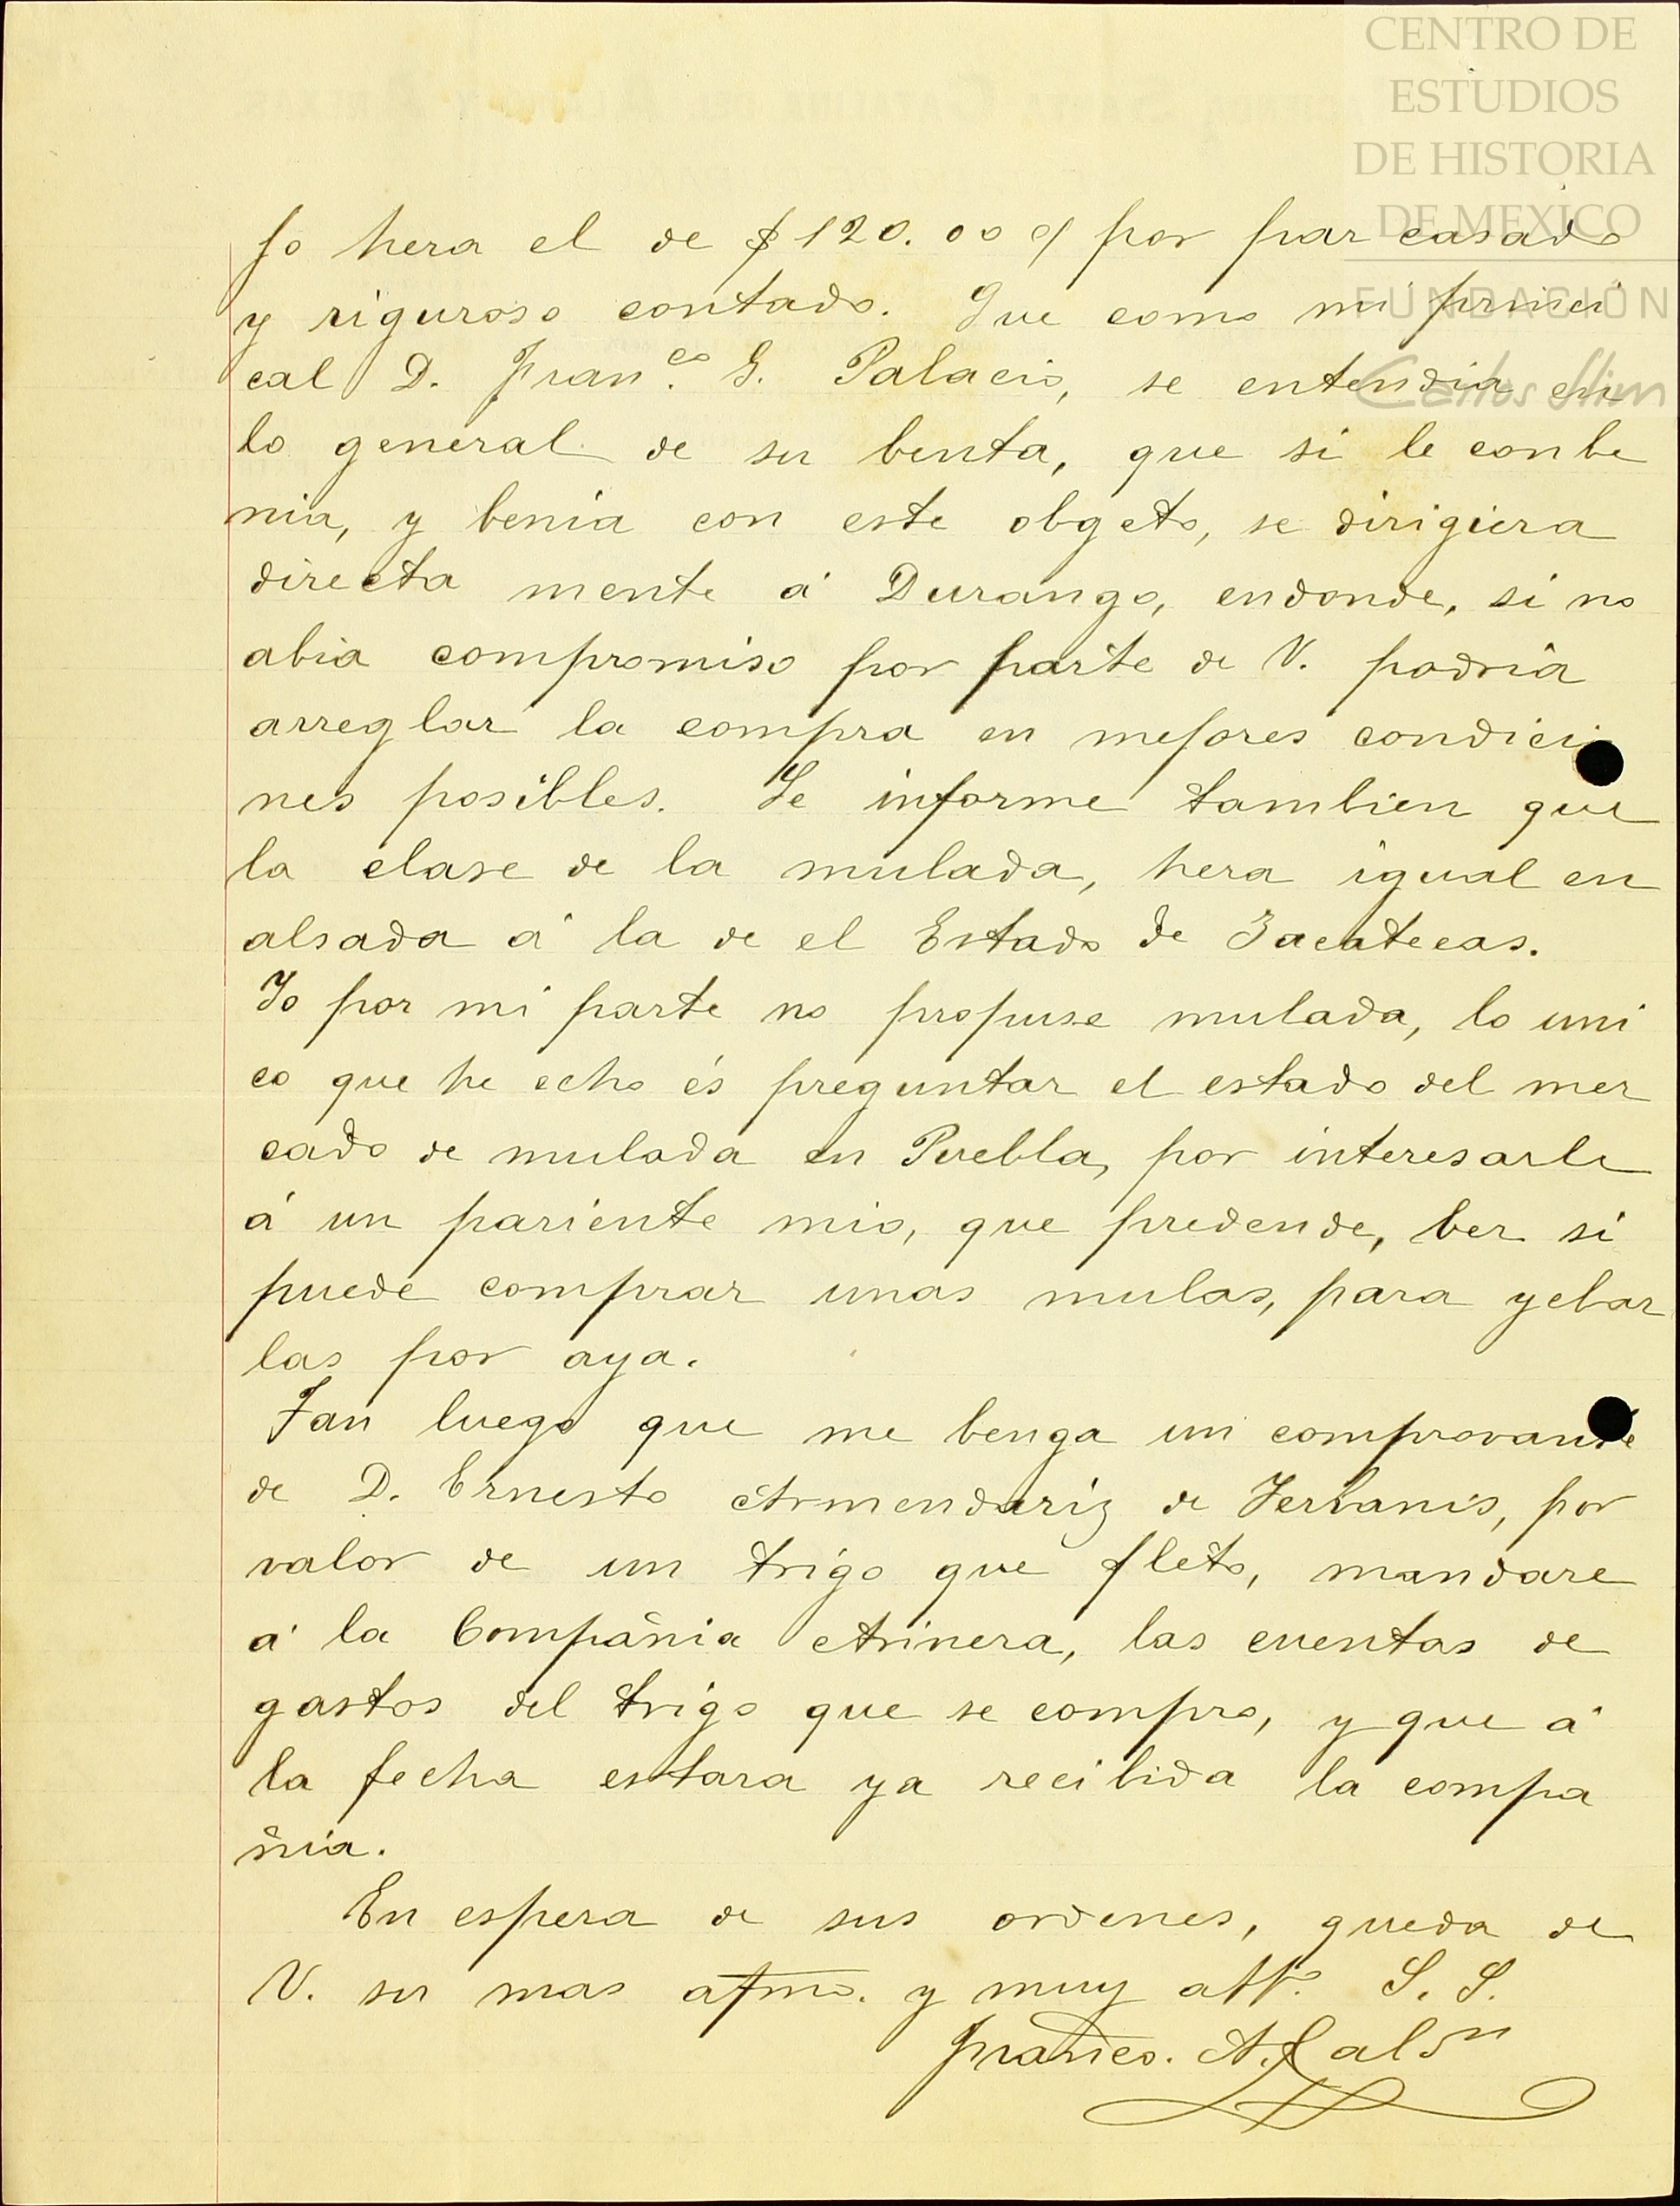 CENTRO DE
ESTUDIOS
DE HISTORIA
DE MEXICO
FUNDACIÓN
Carlos Slim
jo hera el de $120.00 c/ por par casado
y riguroso contado. Que como mi princi
cal D. Fran.co G. Palacio, se entendia en
lo general de su benta, que si le conbe
nia, y benia con este obgeto, se dirigiera
directa mente á Durango, endonde, si no
abia compromiso por parte de V. podria
arreglar la compra en mejores condicio
nes posibles. Le informe tambien que
la clase de la mulada, hera igual en
alsada á la de el Estado de Zacatecas.
Yo por mi parte no propuse mulada, lo uni
co que he echo és preguntar el estado del mer
cado de mulada en Puebla, por interesarle
á un pariente mio, que predende, ber si
puede comprar unas mulas, para yebar
las por aya.
Tan luego que me benga un comprovante
de D. Ernesto Armendariz de Yerbanis, por
valor de un trigo que fleto, mandare
á la Compañia Arinera, las cuentas de
gastos del trigo que se compro, y que á
la fecha estara ya recibida la compa
ñia.
En espera de sus ordenes, queda de
V. su mas afmo. y muy atto. S. S.
Francco. A.